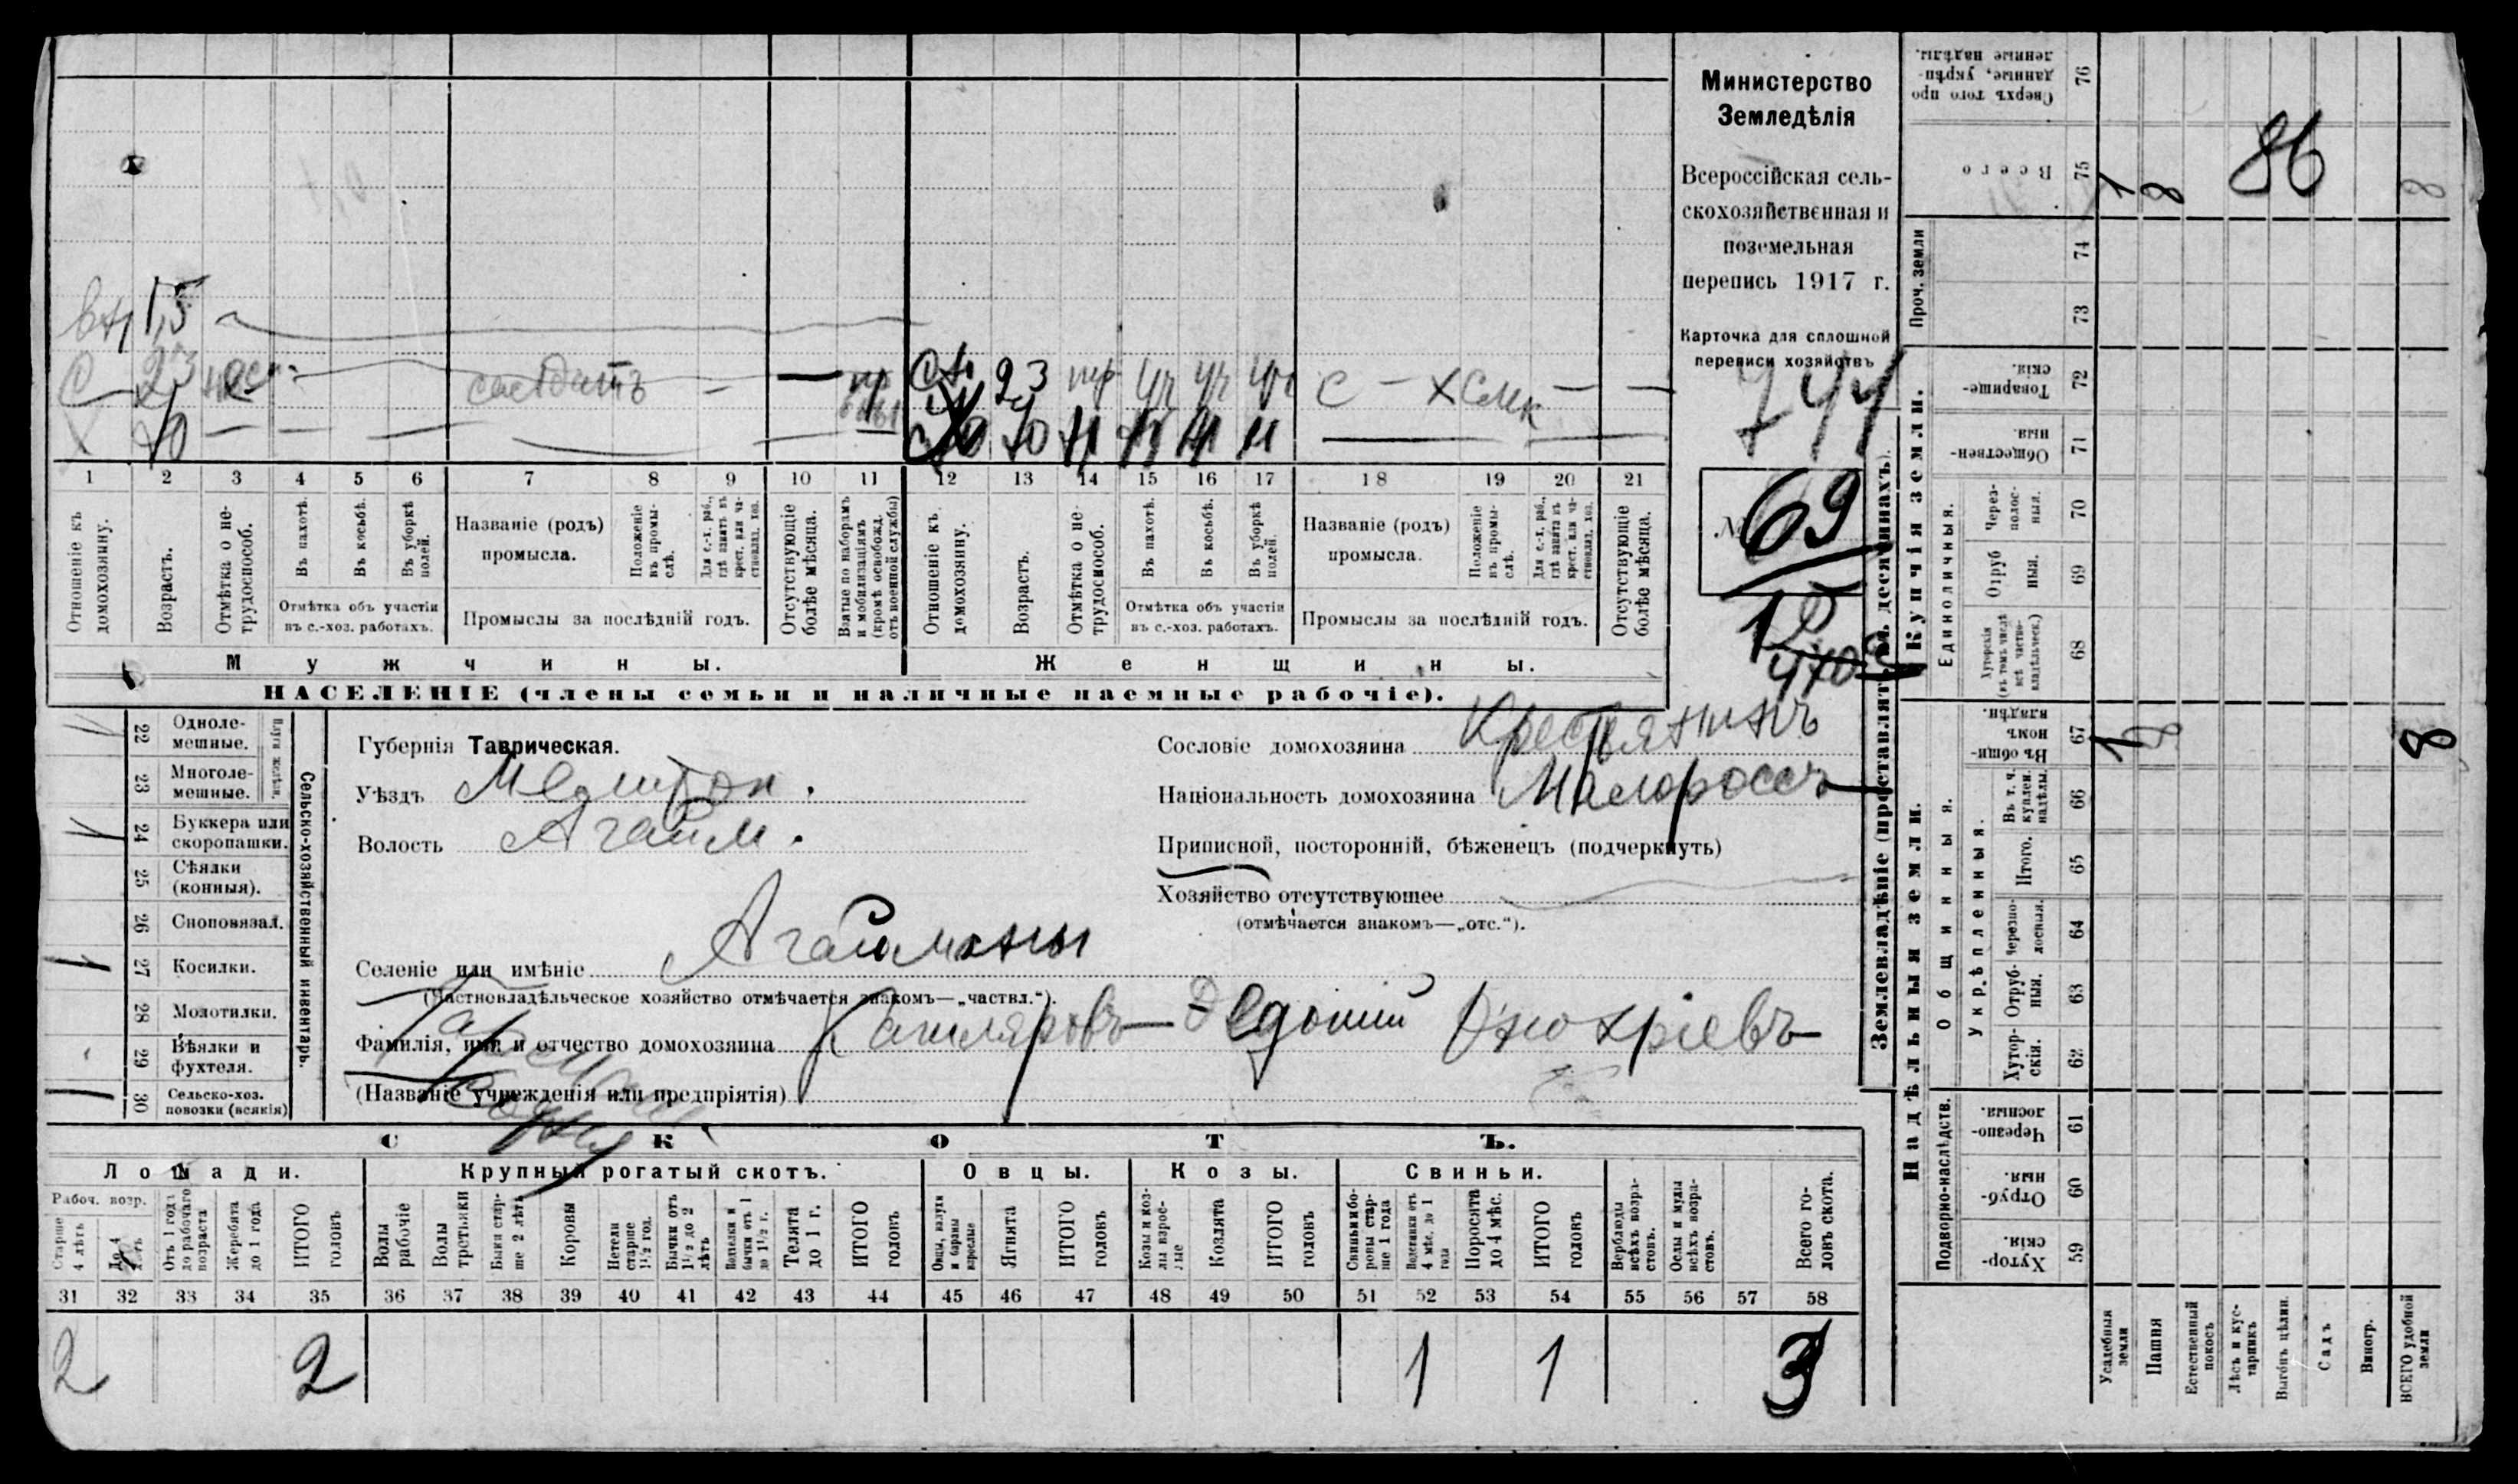 Министерство
Земледѣлія
Всероссійская сель-
скохозяйственная и
поземельная
перепись 1917 г.
Карточка для сплошной
переписи хозяйствъ
744
№ 69
вн 1,5
С 23 солдатъ — 23 С — —
Х 70 — — — — — 70 — —
1 2 3 4 5 6 7 8 9 10 11 12 13 14 15 16 17 18 19 20 21
Отношеніе къ домохозяину.
Возрастъ.
Отмѣтка о не-трудоспособ.
Въ пахотѣ.
Въ косьбѣ.
Въ уборкѣ полей.
Отмѣтка объ участіи
въ с.-хоз. работахъ.
Названіе (родъ)
промысла.
Положеніе въ промы-слѣ.
Для с.-х. раб., гдѣ занятъ въ крест. или ча-стновлад. хоз.
Промыслы за послѣдній годъ.
Отсутствующіе болѣе мѣсяца.
Взятые по наборамъ и мобилизаціямъ (кромѣ освобожд. отъ военной службы)
Отношеніе къ домохозяину.
Возрастъ.
Отмѣтка о не-трудоспособ.
Въ пахотѣ.
Въ косьбѣ.
Въ уборкѣ полей.
Отмѣтка объ участіи
въ с.-хоз. работахъ.
Названіе (родъ)
промысла.
Положеніе въ промы-слѣ.
Для с.-х. раб., гдѣ занятъ въ крест. или ча-стновлад. хоз.
Промыслы за послѣдній годъ.
Отсутствующіе болѣе мѣсяца.
Мужчины.
Женщины.
НАСЕЛЕНІЕ (члены семьи и наличные наемные рабочіе).
Сельско-хозяйственный инвентарь.
Плуги желѣзн.
22 Одноле-мешные.
23 Многоле-мешные.
24 Буккера или скоропашки.
25 Сѣялки (конныя).
26 Сноповязал.
27 Косилки.
28 Молотилки.
29 Вѣялки и фухтеля.
30 Сельско-хоз. повозки (всякія)
Губернія Таврическая.
Уѣздъ Мелитоп.
Волость Агайм.
Селеніе или имѣніе Агайманы
(Частновладѣльческое хозяйство отмѣчается знакомъ—„частвл.“).
Фамилія, имя и отчество домохозяина
(Названіе учрежденія или предпріятія)
Сословіе домохозяина Крестьянинъ
Національность домохозяина Малороссъ
Приписной, посторонній, бѣженецъ (подчеркнуть)
Хозяйство отсутствующее
(отмѣчается знакомъ—„отс.“).
СКОТЪ.
Лошади. Крупный рогатый скотъ. Овцы. Козы. Свиньи.
Рабоч. возр.
Старше 4 лѣтъ
До 4 лѣтъ
Отъ 1 года до рабочаго возраста
Жеребята до 1 года
ИТОГО головъ
Волы рабочіе
Волы третьяки
Быки стар-ше 2 лѣтъ
Коровы
Нетели старше 1½ год.
Бычки отъ 1½ до 2 лѣтъ
Вопелки и бычки отъ 1 до 1½ г.
Телята до 1 г.
ИТОГО головъ
Овцы, валухи и бараны взрослые
Ягнята
ИТОГО головъ
Козы и коз-лы взрос-лые
Козлята
ИТОГО головъ
Свиньи и бо-ровы стар-ше 1 года
Подсвинки отъ 4 мѣс. до 1 года
Поросята до 4 мѣс.
ИТОГО головъ
Верблюды всѣхъ возра-стовъ.
Ослы и мулы всѣхъ возра-стовъ.
Всего го-ловъ скота.
31 32 33 34 35 36 37 38 39 40 41 42 43 44 45 46 47 48 49 50 51 52 53 54 55 56 57 58
2 2 1 1 3
Землевладѣніе (проставлять въ десятинахъ).
Надѣльныя земли.
Купчія земли.
Проч. земли
Подворно-наслѣдств.
Общинныя.
Укрѣпленныя.
Единоличныя.
Хутор-скія. 59
Отруб-ныя. 60
Черезпо-лосныя. 61
Хутор-скія. 62
Отруб-ныя. 63
Черезпо-лосныя. 64
Итого. 65
Въ т. ч. куплен. надѣлы. 66
Въ общин-номъ владѣн. 67 1 8 8
Хуторскія (въ томъ числѣ всѣ частно-владѣльческ.) 68
Отруб ныя. 69
Через-полос-ныя. 70
Обществен-ныя. 71
Товарище-скія. 72
73
74
Всего 75 1 8 86 8
Сверхъ того про данные, укрѣп-ленные надѣлы. 76
Усадебныя земли
Пашня
Естественный покосъ
Лѣсъ и кус-тарникъ
Выгонъ цѣлин.
Садъ
Виногр.
ВСЕГО удобной земли